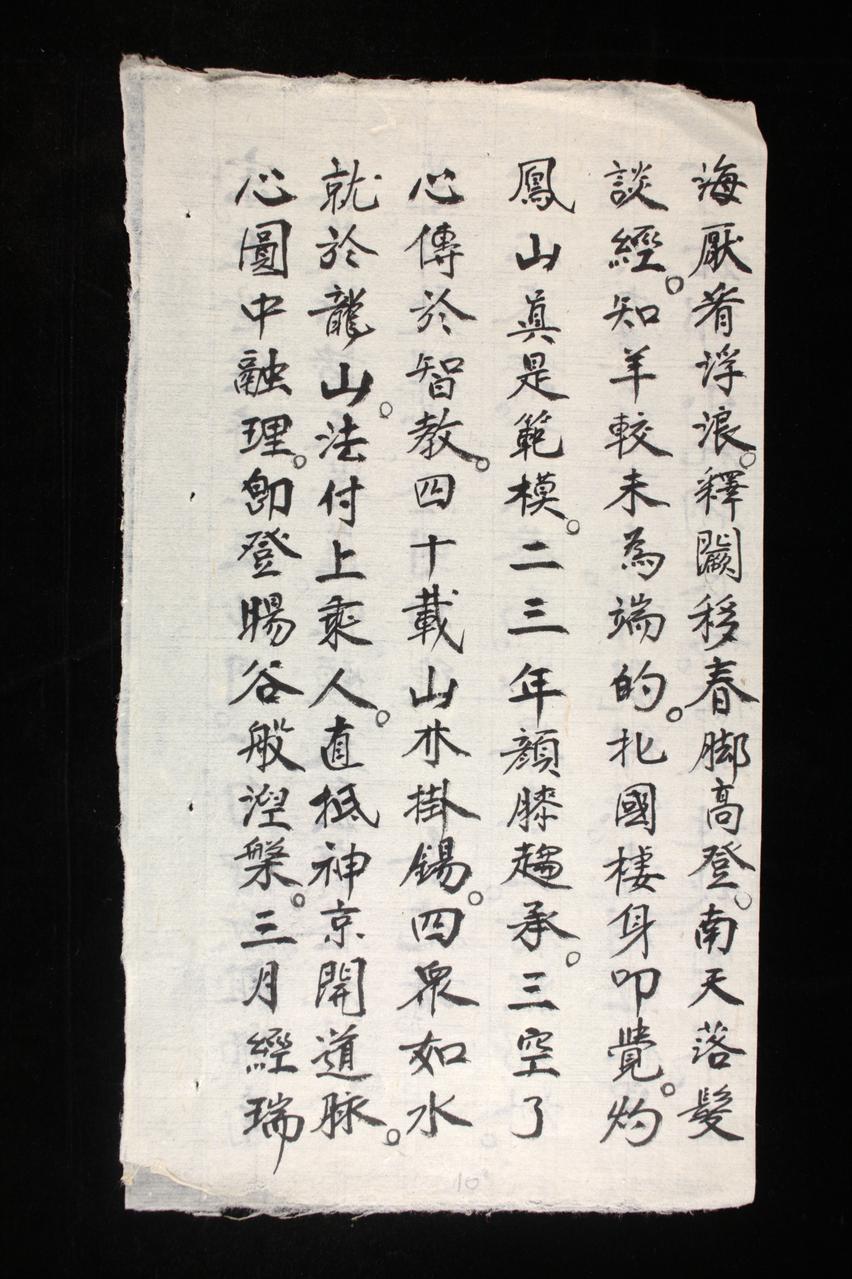 海厭肴浮浪。釋闕移春脚高登。南天落髮
談經。知羊較未為端的。北國棲身叩覺。灼
鳳山眞是範模。二三年顔膝趨承。三空了
心傳於智教。四十載山林掛錫。四衆如水
就於龍山。法付上乘人。直抵神京開道脉。
心圓中融理。卽登暘谷般涅槃。三月經瑞
10